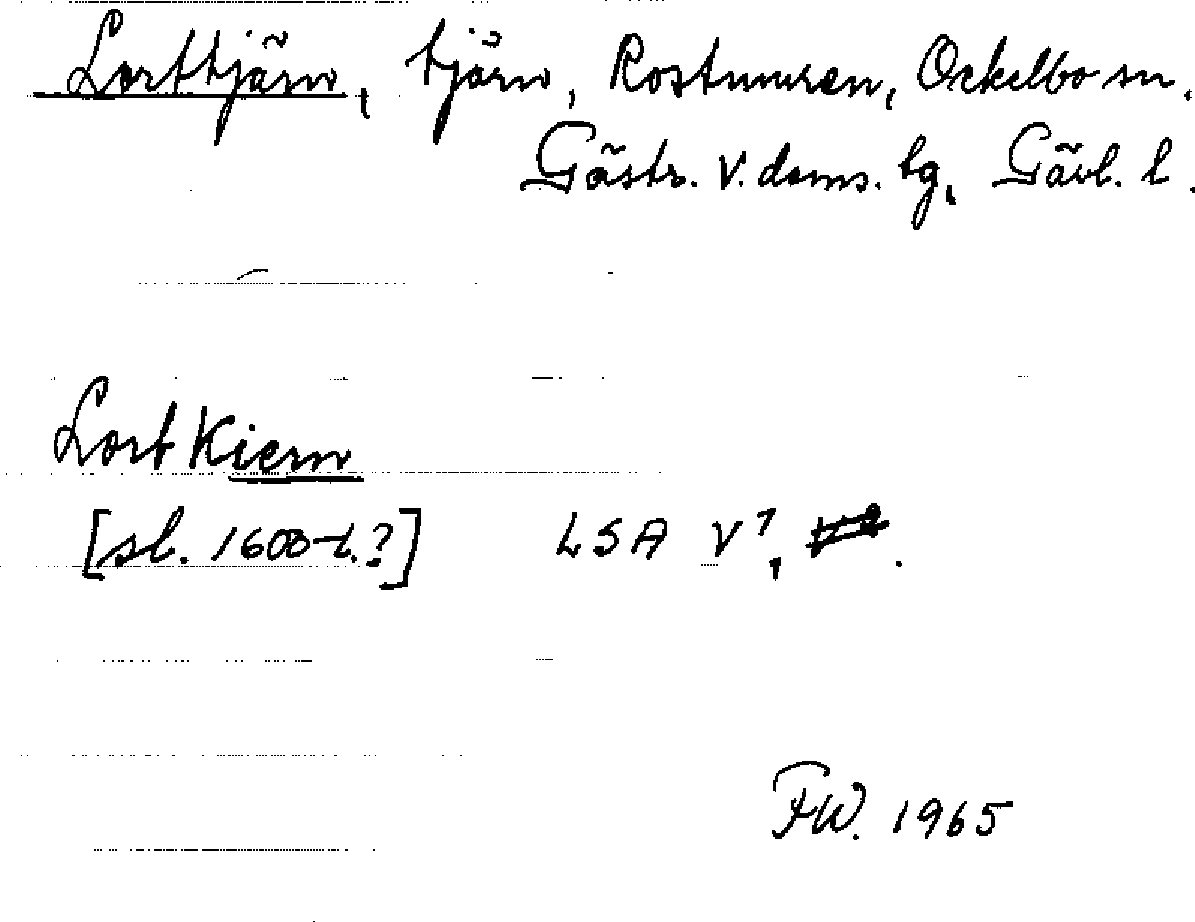 Lorttjärn, tjärn, Rostmuren, Ockelbo sn.
Gästr. V. doms. tg, Gävl. l.
Lort Kiern
[sl. 1600-t.?] LSA V⁷,
FW. 1965